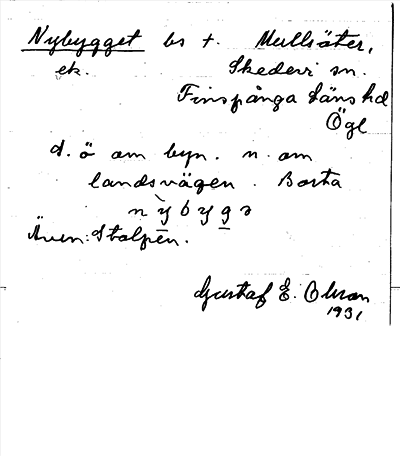 Nybygget bs t. Mullsäter,
ek. Skedevi sn.
Finspånga läns hd
Ögl
d. ö om byn. n. om
landsvägen. Borta
nỳbyg̲ə
Även: Stolpen.
Gustaf E. Olsson
1931